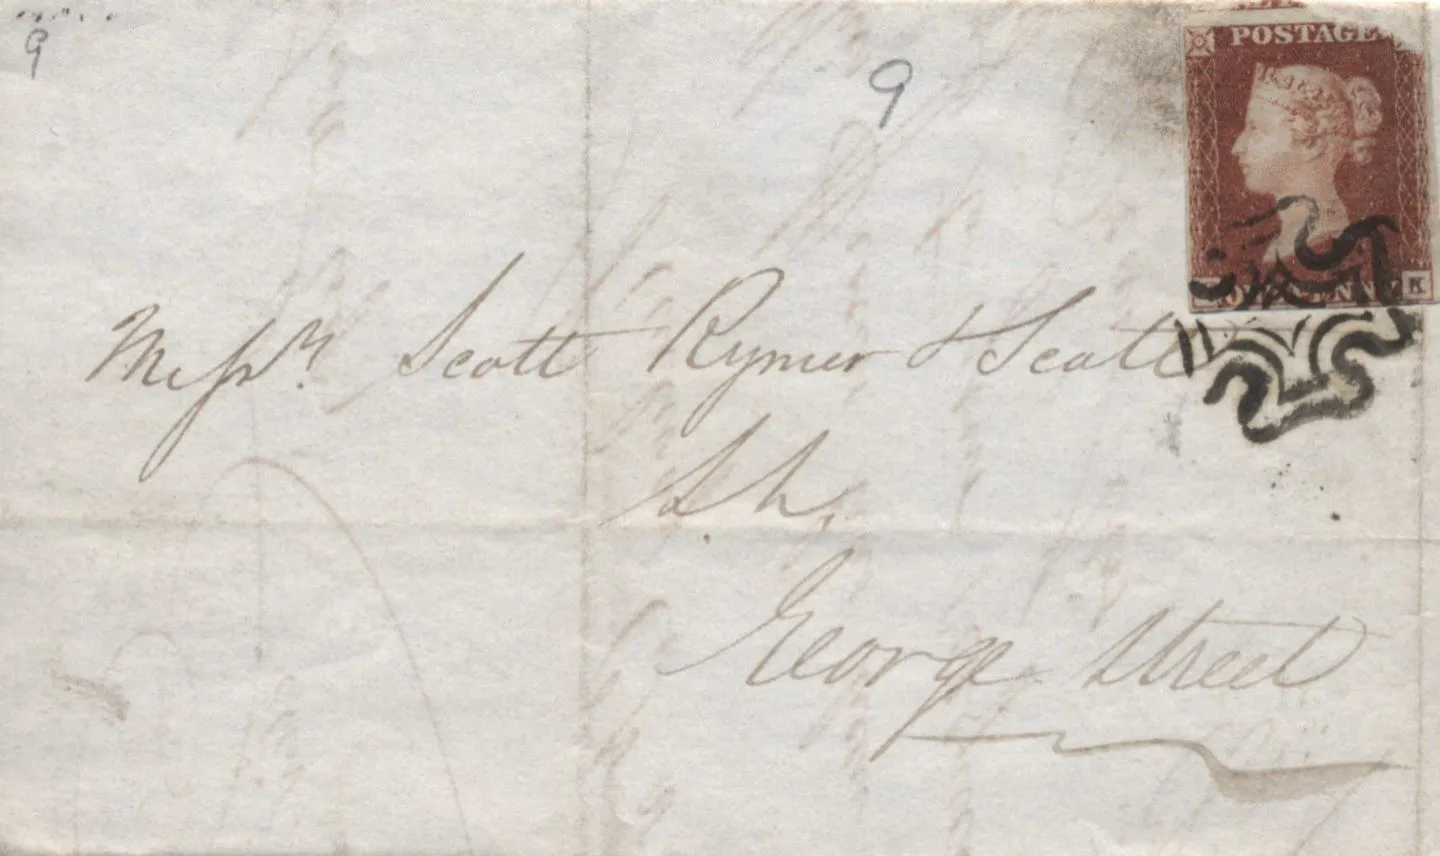 9
9
POSTAGE
Messrs. Scott Rymer & Scott
ONE PENNY K
George Street